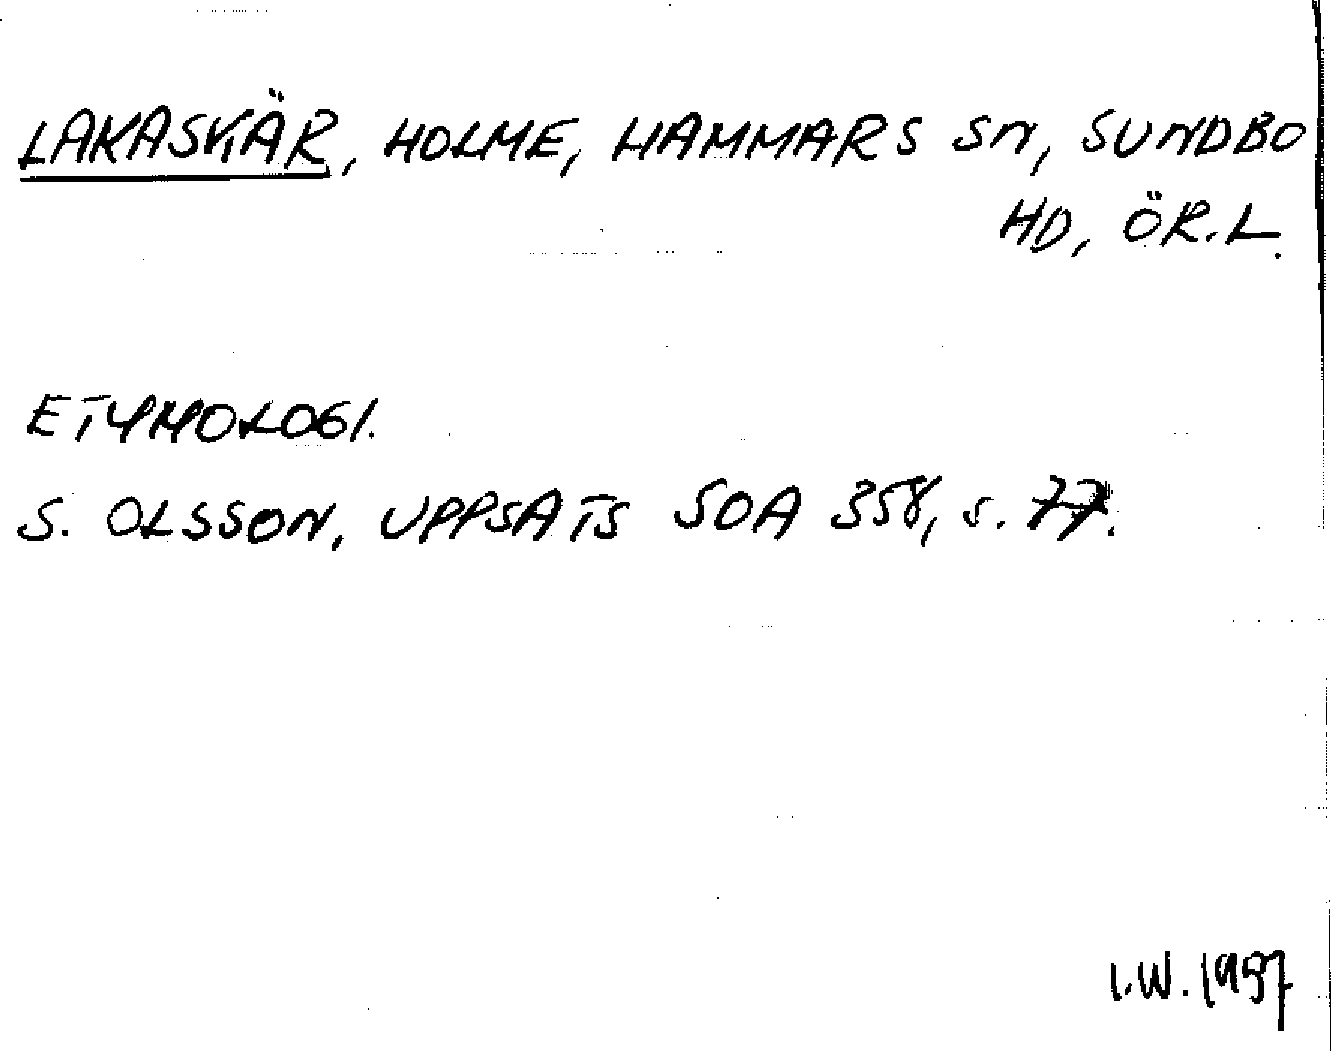 LAKASKÄR, HOLME, HAMMARS SN, SUNDBO
HD, ÖR.L.
ETYMOLOGI.
S. OLSSON, UPPSATS SOA 358, s. 77.
I.W. 1997